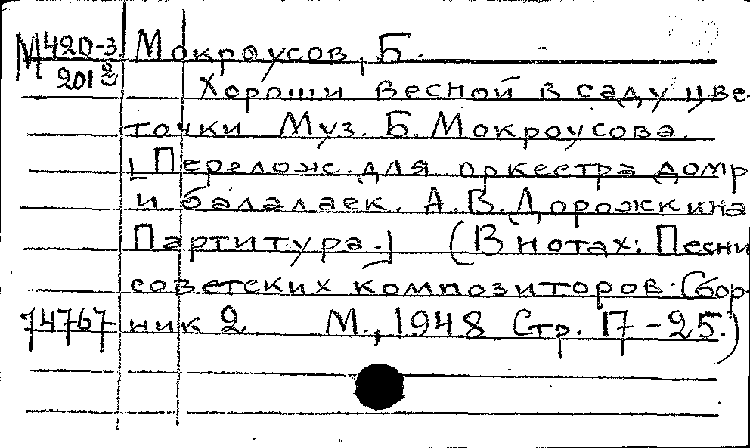 М420-3 Мокроусов, Б.
2012 Хороши весной в саду цве-
точки Муз. Б. Мокроусова.
[Перелож. для оркестра домр
и балалаек. А.В. Дорожкина
Партитура.] (В нотах: Песни
советских композиторов. Сбор-
74767 ник 2 М., 1948 Стр. 17-25.)